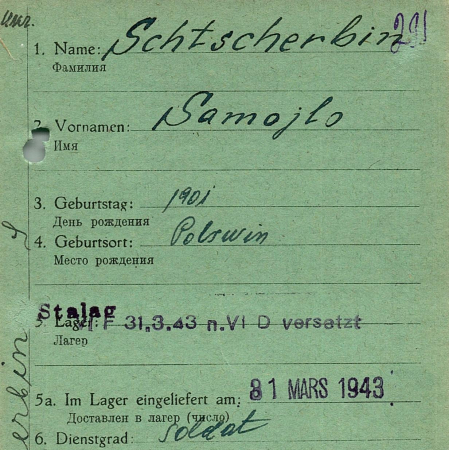 1. Name: Schtscherbin 291
Фамилия
2. Vornamen: Samojlo
Имя
3. Geburtstag: 1901
День рождения
4. Geburtsort: Polswin
Место рождения
Stalag
5. Lager: 31.3.43 n.VI D versetzt
Лагер
5a. Im Lager eingeliefert am: 31 MARS 1943
Доставлен в лагер (число)
6. Dienstgrad: Soldat
erbin